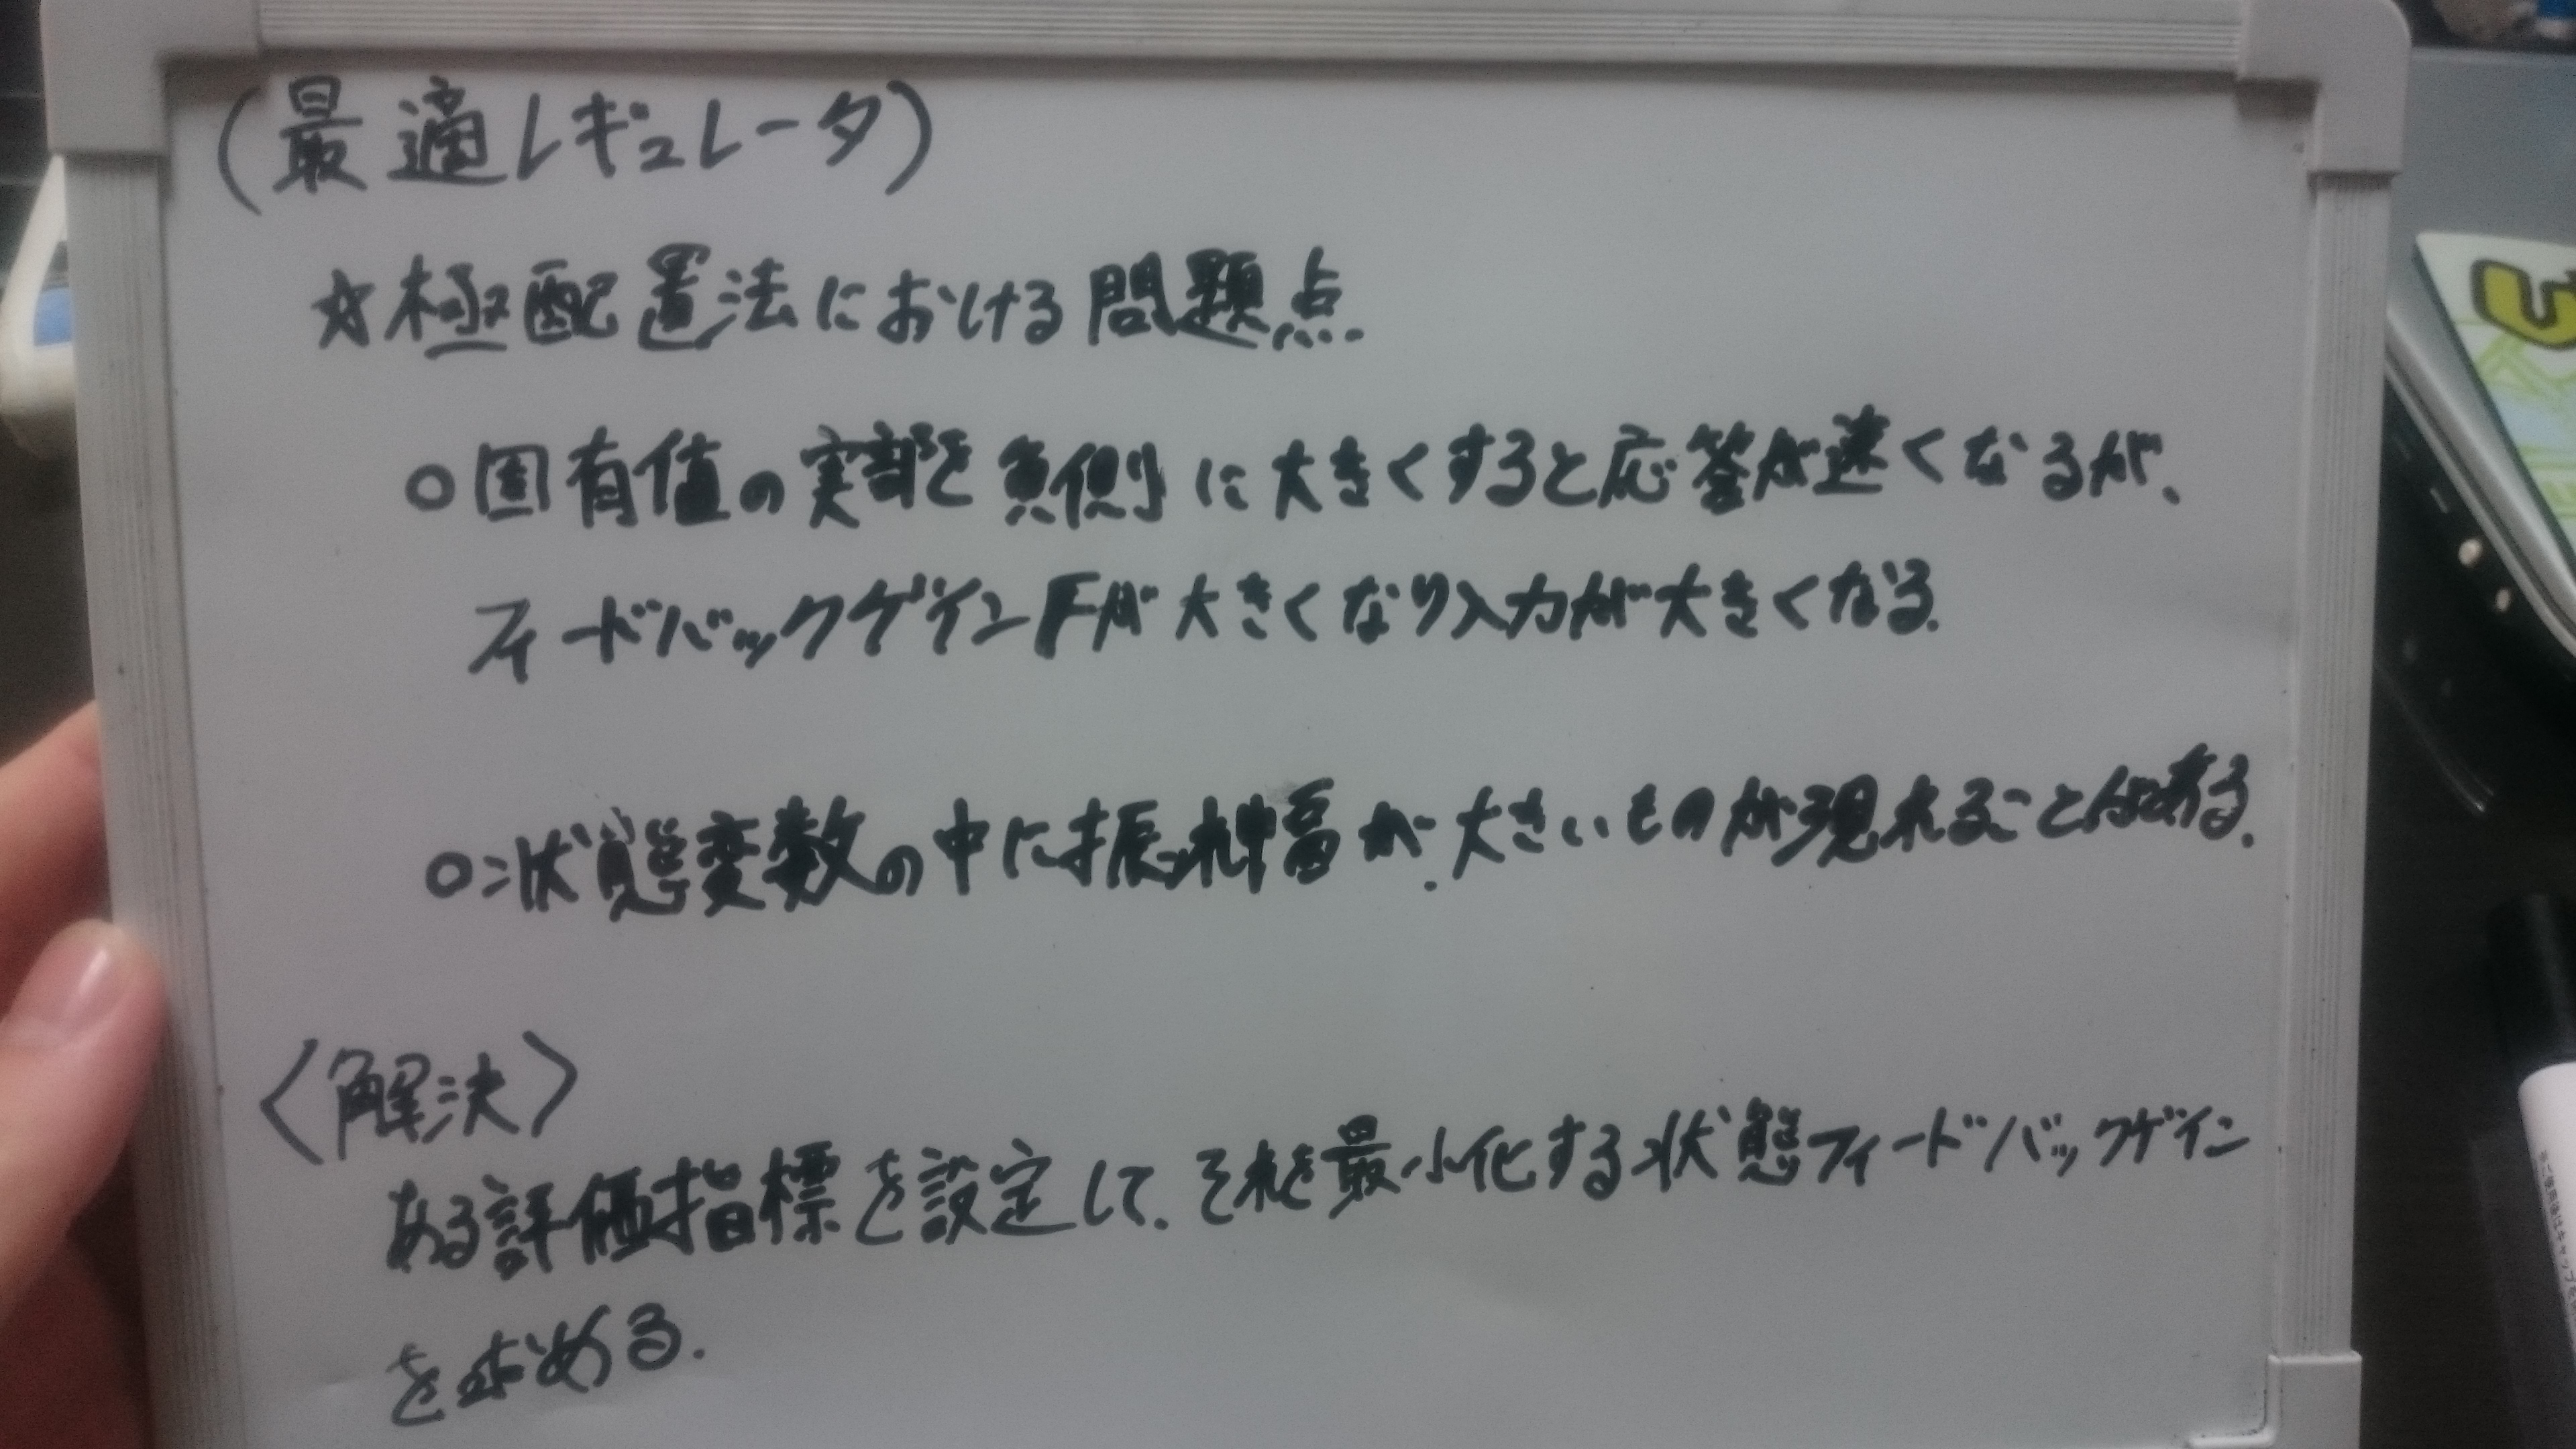 (最適レギュレータ)
☆極配置法における問題点.
○固有値の実部を負側に大きくすると応答が速くなるが、
フィードバックゲインFが大きくなり入力が大きくなる.
○状態変数の中に振れ幅が大きいものが現れることがある.
〈解決〉
ある評価指標を設定して、それを最小化する状態フィードバックゲイン
を求める.